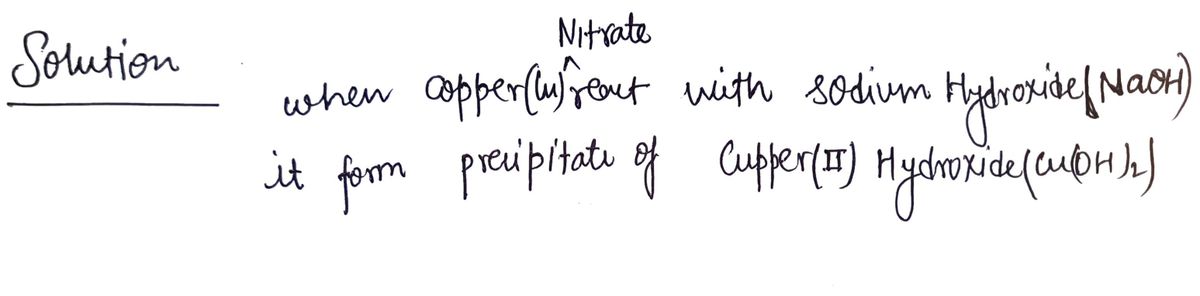 Solution
when copper(Cu) ^ Nitrate react with sodium Hydroxide(NaOH)
it form precipitate of Cupper(II) Hydroxide(Cu(OH)2)